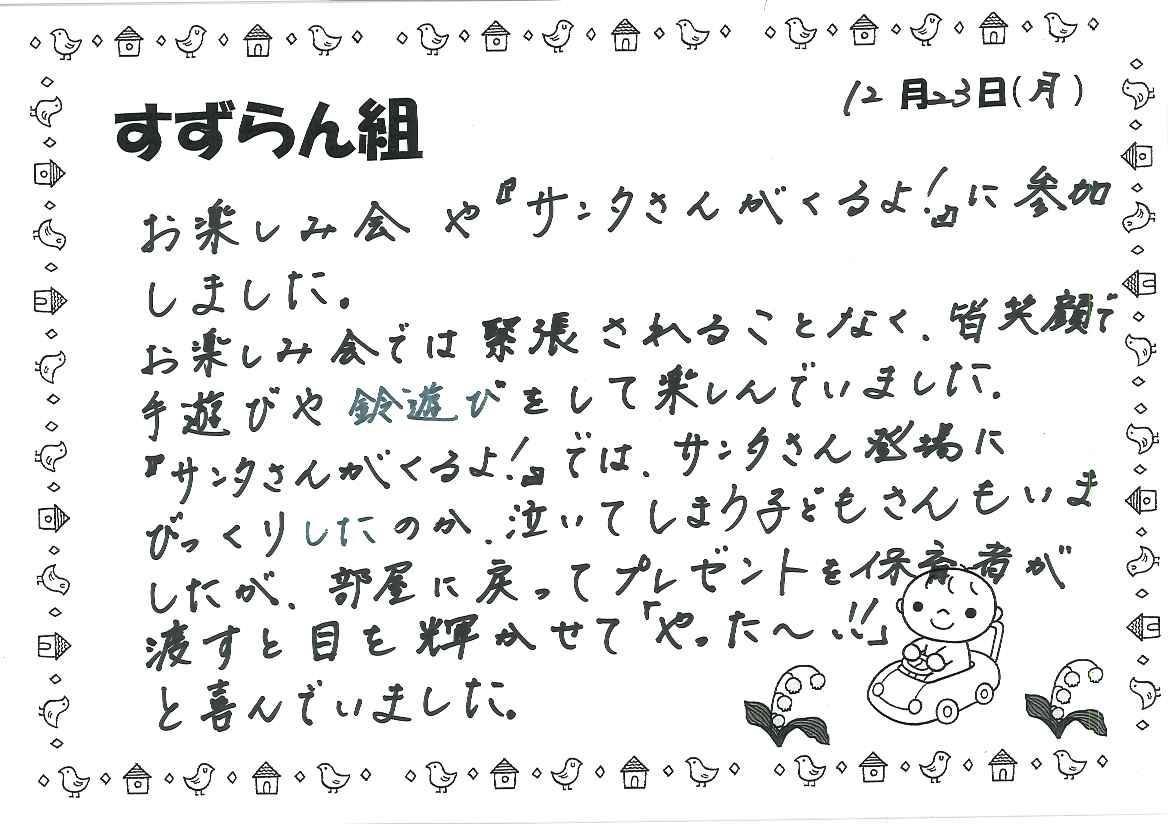 12月23日(月)
すずらん組
お楽しみ会や『サンタさんがくるよ!』に参加
しました。
お楽しみ会では緊張されることなく、皆笑顔で
手遊びや鈴遊びをして楽しんでいました。
『サンタさんがくるよ!』では、サンタさん登場に
びっくりしたのか、泣いてしまう子どもさんもいま
したが、部屋に戻ってプレゼントを保育者が
渡すと目を輝かせて「やった〜!!」
と喜んでいました。